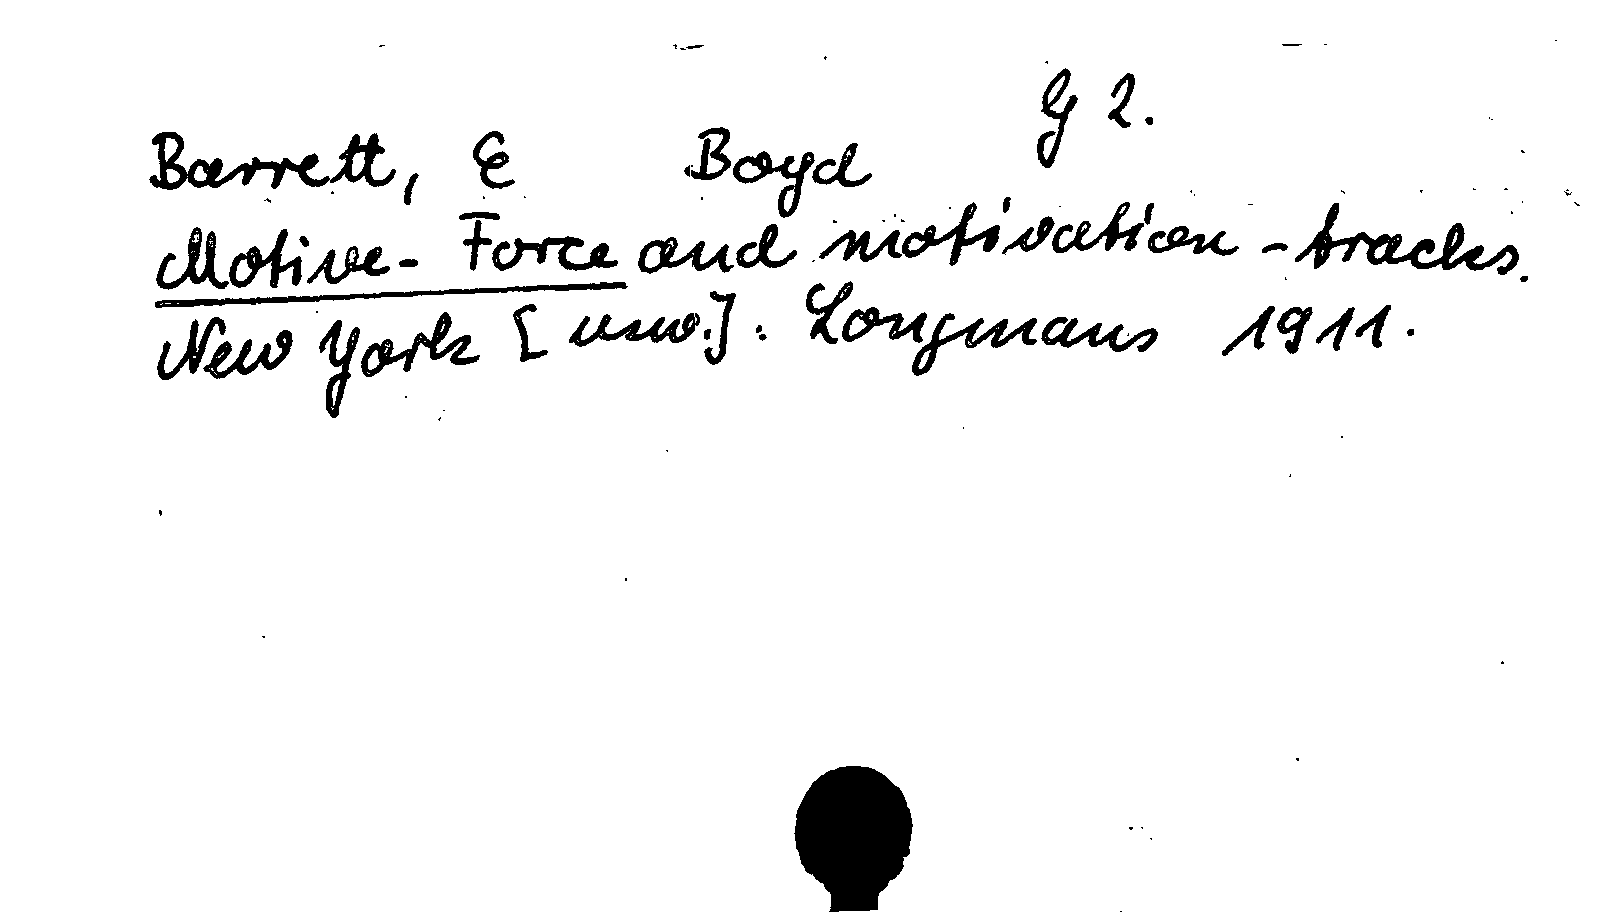 G 2.
Barrett, E Boyd
Motive-Force and motivation-tracks.
New York [usw.]: Longmans 1911.